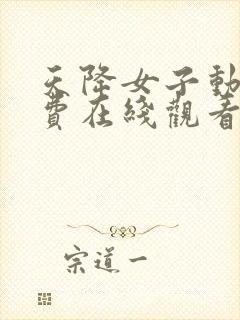 天降女子動
費在綫觀看
宗道一